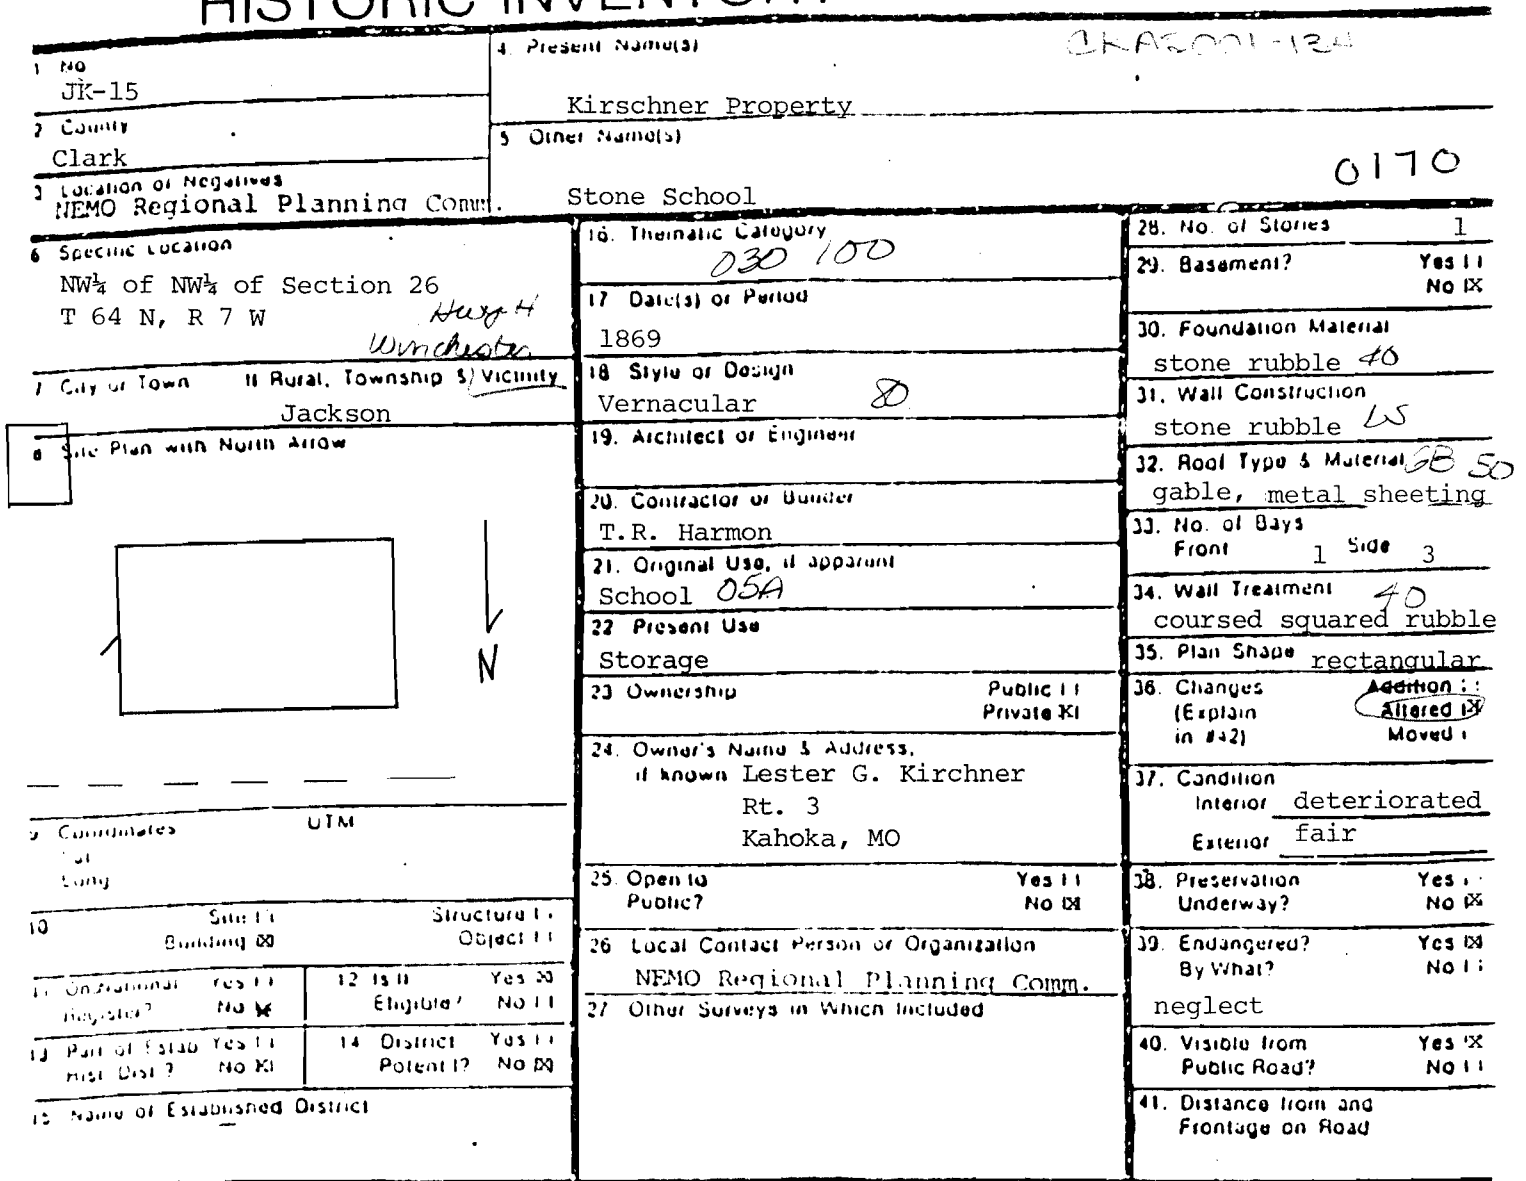 HISTORIC INVENTORY
1 No
JK-15
2 County
Clark
3 Location of Negatives
NEMO Regional Planning Comm.
4. Present Name(s)
Kirschner Property
5 Other Name(s)
Stone School
0170
6 Specific Location
NW¼ of NW¼ of Section 26
T 64 N, R 7 W
Winchester
7 City or Town If Rural, Township & Vicinity
Jackson
8 Site Plan with North Arrow
N
9 Coordinates UTM
Lat
Long
10 Site Structure
Building ☒ Object
11 On National Yes
Register? No ☒
12 Is It Yes ☒
Eligible? No
13 Part of Estab Yes
Hist Dist? No ☒
14 District Yes
Potent'l? No ☒
15 Name of Established District
16. Thematic Category
030 100
17 Date(s) or Period
1869
18 Style or Design
Vernacular 80
19. Architect or Engineer
20. Contractor or Builder
T.R. Harmon
21. Original Use, if apparent
School 05A
22 Present Use
Storage
23 Ownership Public
Private ☒
24. Owner's Name & Address,
if known Lester G. Kirchner
Rt. 3
Kahoka, MO
25. Open to Yes
Public? No ☒
26 Local Contact Person or Organization
NEMO Regional Planning Comm.
27 Other Surveys in Which Included
28. No. of Stories 1
29. Basement? Yes
No ☒
30. Foundation Material
stone rubble 40
31. Wall Construction
stone rubble LS
32. Roof Type & Material GB 50
gable, metal sheeting
33. No. of Bays
Front 1 Side 3
34. Wall Treatment 40
coursed squared rubble
35. Plan Shape rectangular
36. Changes Addition
(Explain Altered ☒
in #42) Moved
37. Condition
Interior deteriorated
Exterior fair
38. Preservation Yes
Underway? No ☒
39. Endangered? Yes ☒
By What? No
neglect
40. Visible from Yes ☒
Public Road? No
41. Distance from and
Frontage on Road